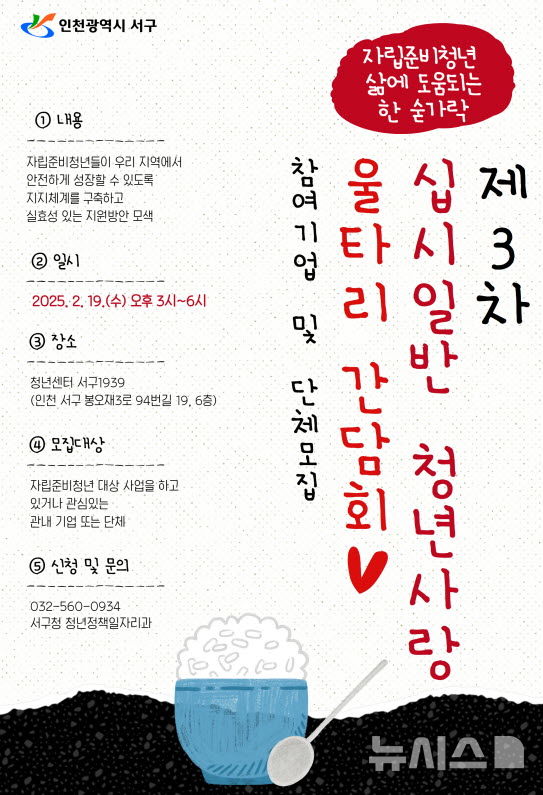 인천광역시 서구
자립준비청년
삶에 도움되는
한 숟가락
제3차
십시일반 청년사랑
울타리 간담회
참여기업 및 단체모집
① 내용
자립준비청년들이 우리 지역에서
안전하게 성장할 수 있도록
지지체계를 구축하고
실효성 있는 지원방안 모색
② 일시
2025. 2. 19.(수) 오후 3시~6시
③ 장소
청년센터 서구1939
(인천 서구 봉오재3로 94번길 19, 6층)
④ 모집대상
자립준비청년 대상 사업을 하고
있거나 관심있는
관내 기업 또는 단체
⑤ 신청 및 문의
032-560-0934
서구청 청년정책일자리과
뉴시스